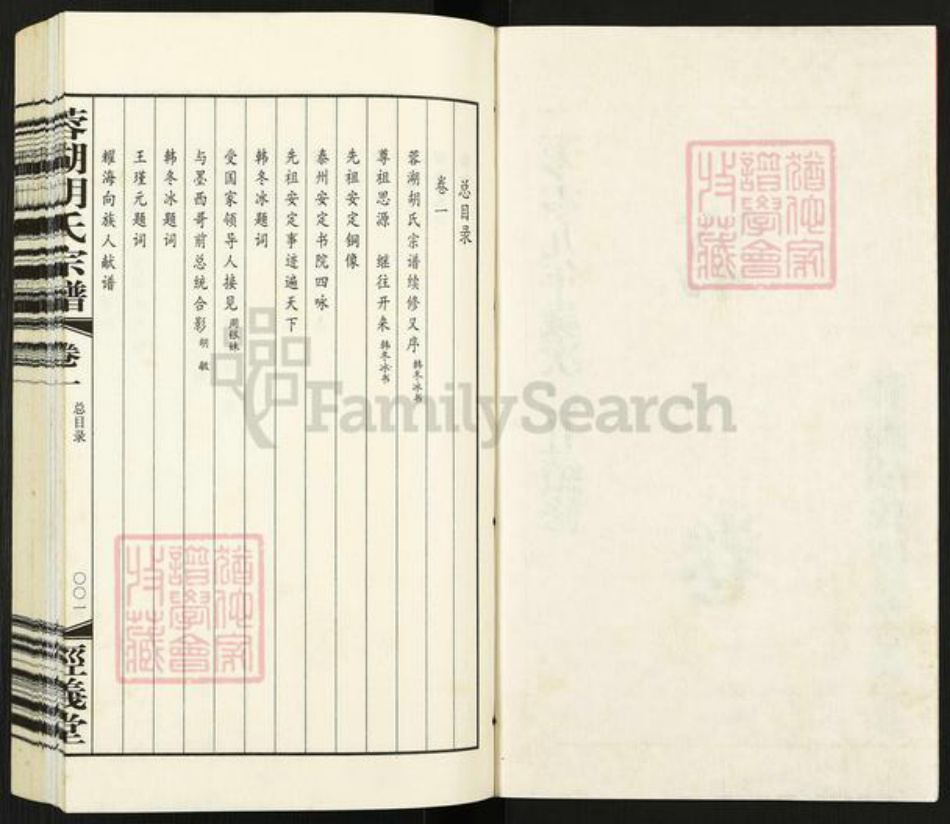 总目录
卷一
蓉湖胡氏宗谱续修又序 韩冬冰书
尊祖思源 继往开来 韩冬冰书
先祖安定铜像
泰州安定书院四咏
先祖安定事迹遍天下
韩冬冰题词
受国家领导人接见 周银妹
与墨西哥前总统合影 胡敏
韩冬冰题词
王瑾元题词
耀海向族人献谱
蓉湖胡氏宗谱
卷一
总目录
〇〇一
經義堂
譜學會
收藏
譜學會
收藏
FamilySearch